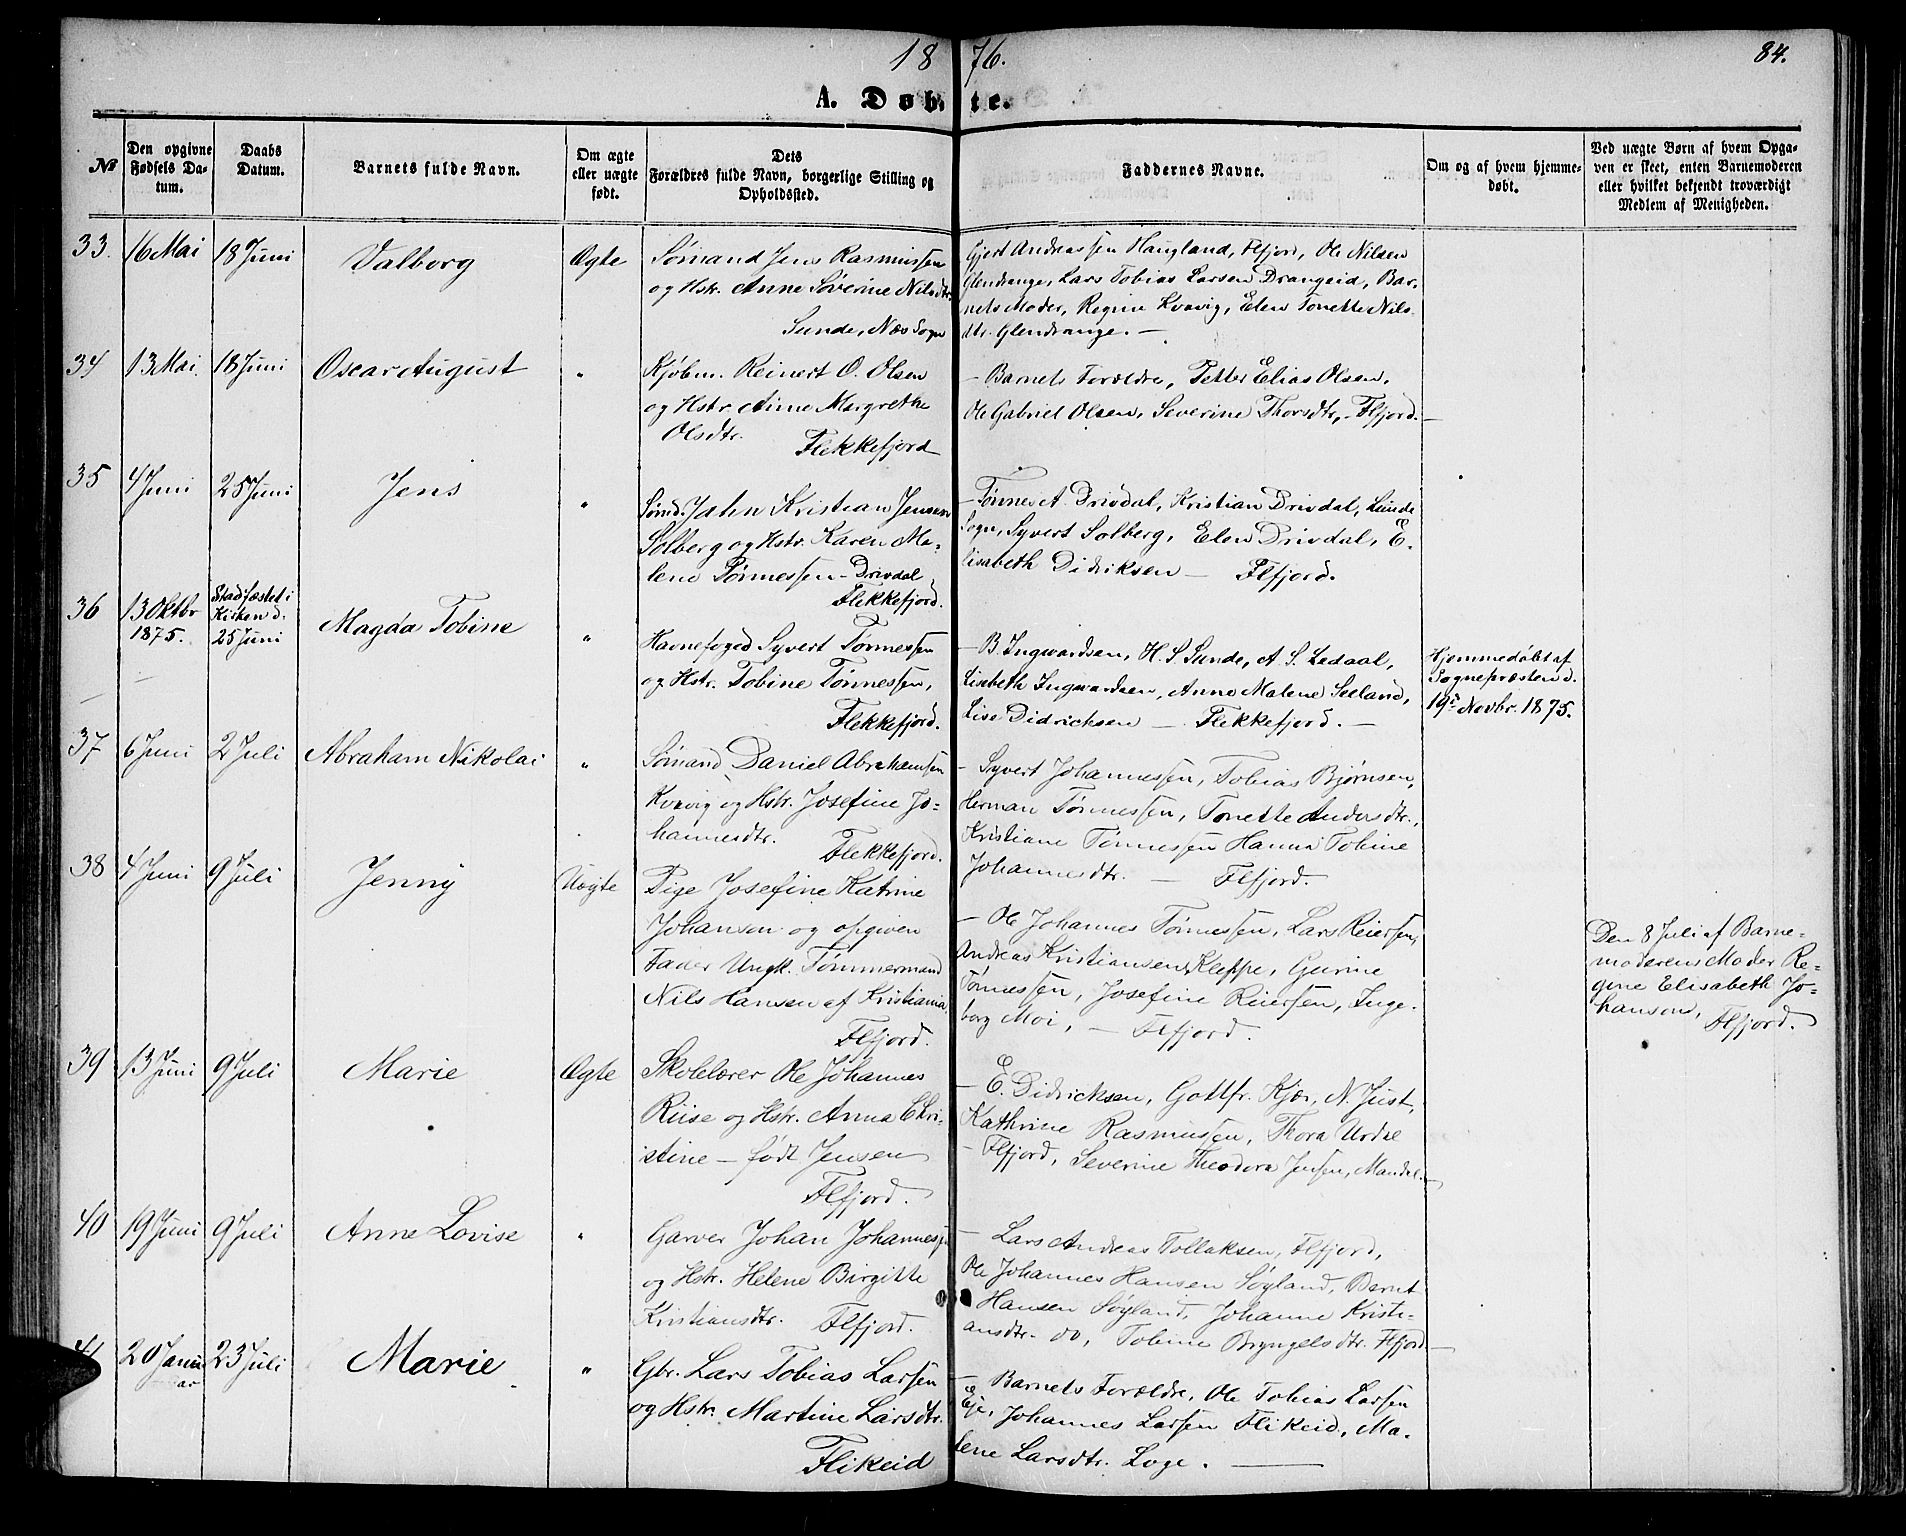 1876.
84.
A. Døbte.
№
Den opgivne Fødsels Datum.
Daabs Datum.
Barnets fulde Navn.
Om ægte eller uægte født.
Dets Forældres fulde Navn, borgerlige Stilling og Opholdssted.
Faddernes Navne.
Om og af hvem hjemmedøbt.
Ved uægte Børn af hvem Opgaven er skeet, enten Barnemoderen eller hvilket bekjendt troværdigt Medlem af Menigheden.
33.
16 Mai
18 Juni
Valborg
Ægte
Sømand Jens Rasmussen
og Hstr. Anne Søverine Nilsdtr.
Sunde, Næs Sogn
Gjert Andreassen Haugland, Flfjord, Ole Nilsen
Glendrange, Lars Tobias Larsen Drangeid, Bar-
nets Moder, Regine Kvavig, Elen Tonette Nils-
dtr. Glendrange. —
34
13 Mai
18 Juni
Oscar August
"
Kjøbm. Reinert O. Olsen
og Hstr. Anne Margrethe
Olsdtr.
Flekkefjord
— Barnets Forældre, Petter Elias Olsen,
Ole Gabriel Olsen, Severine Thorsdtr, Flfjord. —
35
4 Juni
25 Juni
Jens
"
Sømd. John Kristian Jensen
Solberg og Hstr. Karen Ma-
lene Tønnessen - Drivdal
Flekkefjord.
— Tønnes A. Drivdal, Kristian Drivdal, Lunde
Sogn, Syvert Solberg, Elen Drivdal, E-
lisabeth Didriksen — Flfjord.
36
13 Oktbr
1875.
Stadfæstet i
Kirken d.
25 Juni
Magda Tobine
"
Havnefoged Syvert Tønnessen
og Hstr. Tobine Tønnessen,
Flekkefjord.
— B. Ingwardsen, H. S. Sunde, A. S. Ledaal,
Lisabeth Ingwardsen, Anne Malene Seeland,
Lise Didricksen — Flekkefjord. —
Hjemmedøbt af
Sognepræsten d.
19de Novbr. 1875.
37
6 Juni
2 Juli
Abraham Nikolai
"
Sømand Daniel Abrahamsen
Kvavig og Hstr. Josefine Jo-
hannesdtr.
Flekkefjord.
— Syvert Johannessen, Tobias Bjørnsen,
Herman Tønnessen, Tonette Andersdtr.,
Kristiane Tønnessen Hanna Tobine
Johannesdtr. — Flfjord.
38
4 Juni
9 Juli
Jenny
Uægte
Pige Josefine Katrine
Johanson og opgiven
Fader Ungk. Tømmermand
Nils Hansen af Kristiania,
Flfjord.
— Ole Johannes Tønnessen, Lars Reiersen,
Andreas Kristiansen Kleppe, Gurine
Tønnessen, Josefine Reiersen, Inge-
borg Moi, — Flfjord.
Den 8 Juli af Barne-
moderens Moder Re-
gine Elisabeth Jo-
hanson, Flfjord.
39
13 Juni
9 Juli
Marie
Ægte
Skolelærer Ole Johannes
Riise og Hstr. Anna Chri-
stine — født Jensen
Flfjord.
— E. Didricksen, Gottfr. Kjær, N. Just,
Kathrine Rasmussen, Thora Urdal
— Flfjord, Severine Theodora Jensen, Mandal. —
40
19 Juni
9 Juli
Anne Lovise
"
Garver Johan Johannesen
og Hstr. Helene Birgitte
Kristiansdtr. Flfjord.
— Lars Andreas Tollaksen, Flfjord,
Ole Johannes Hansen Søyland, Bernt
Hansen Søyland, Johanne Kristi-
ansdtr. do, Tobine Bryngelsdtr. Flfjord —
41
20 Janu-
ar
23 Juli
Marie
"
Gbr. Lars Tobias Larsen
og Hstr. Martine Larsdtr.
Flikeid
— Barnets Forældre, Ole Tobias Larsen
Eje, Johannes Larsen Flikeid, Ma-
lene Larsdtr. Loge. —